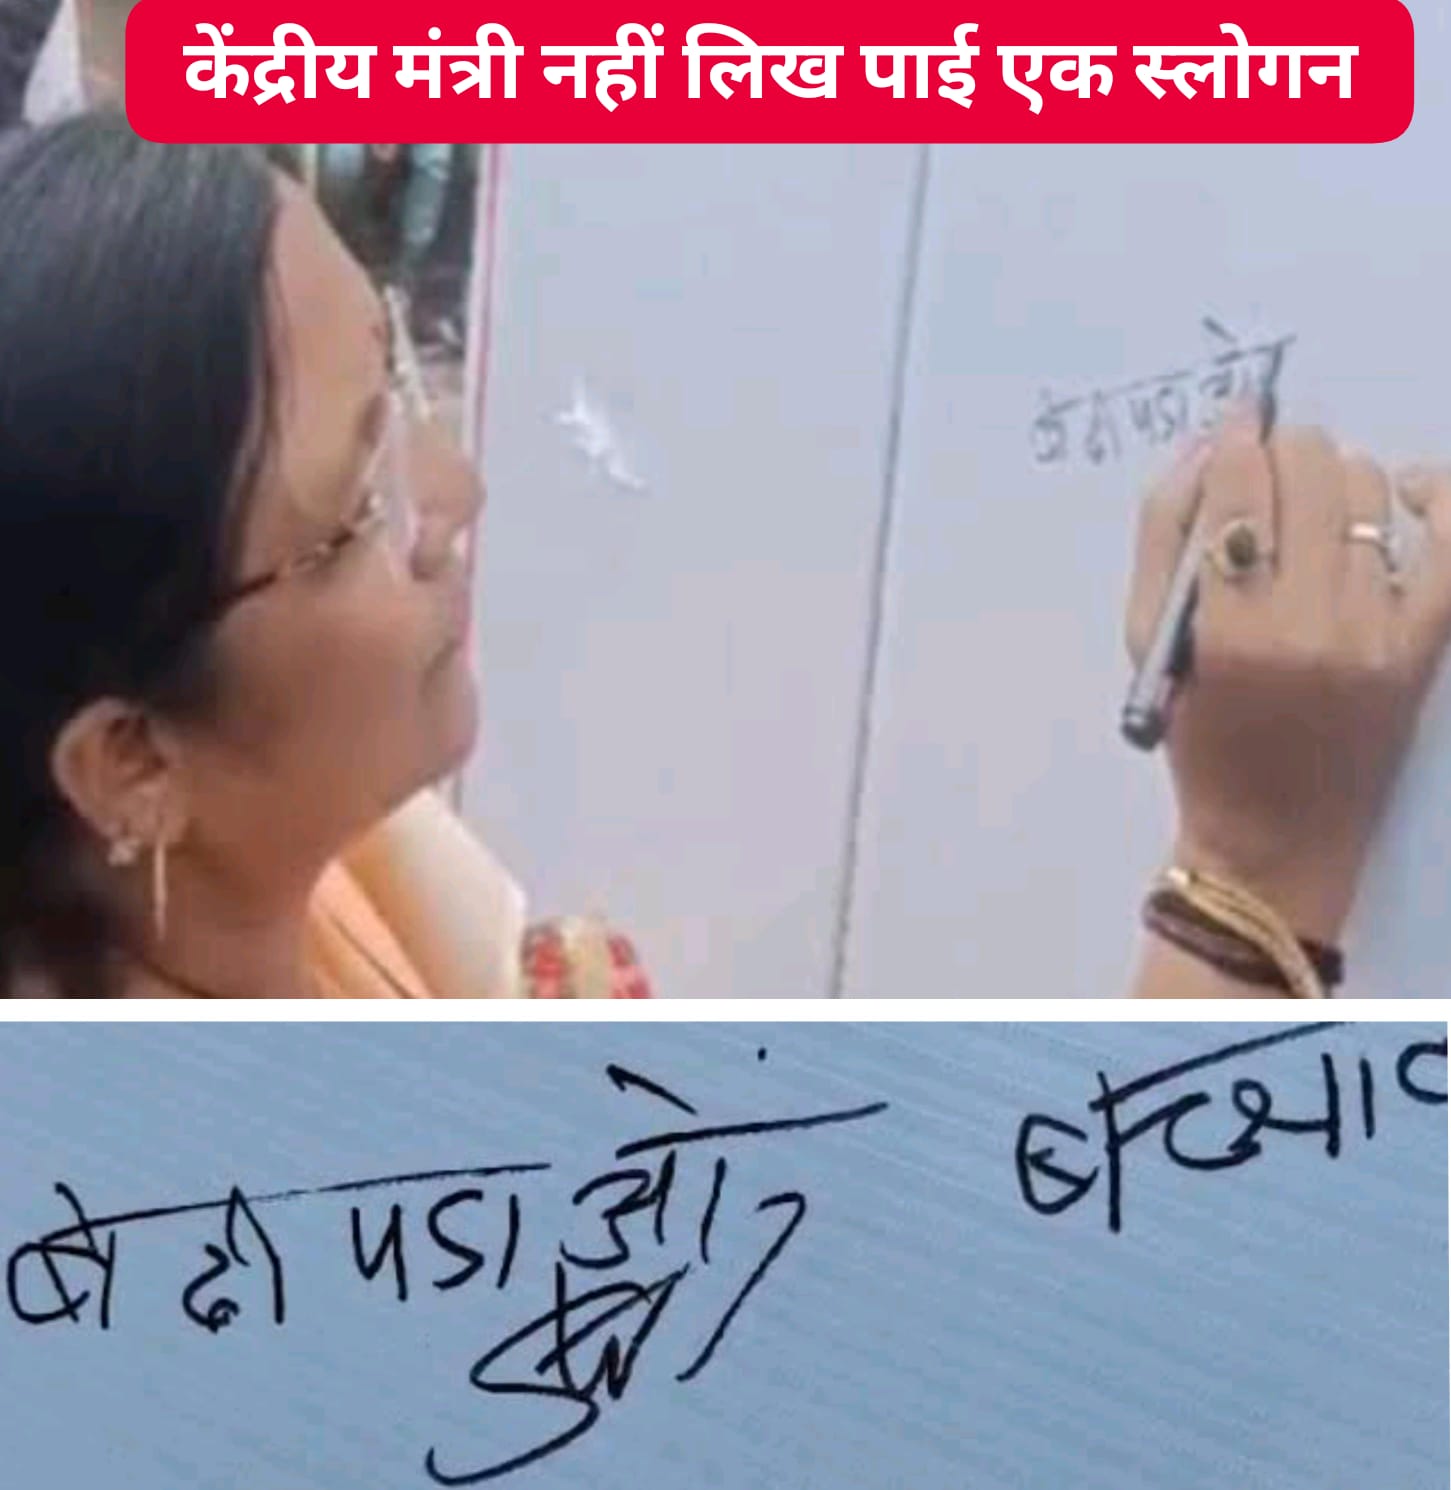 केंद्रीय मंत्री नहीं लिख पाई एक स्लोगन
बे दी पडाओ
बे दी पडाओ